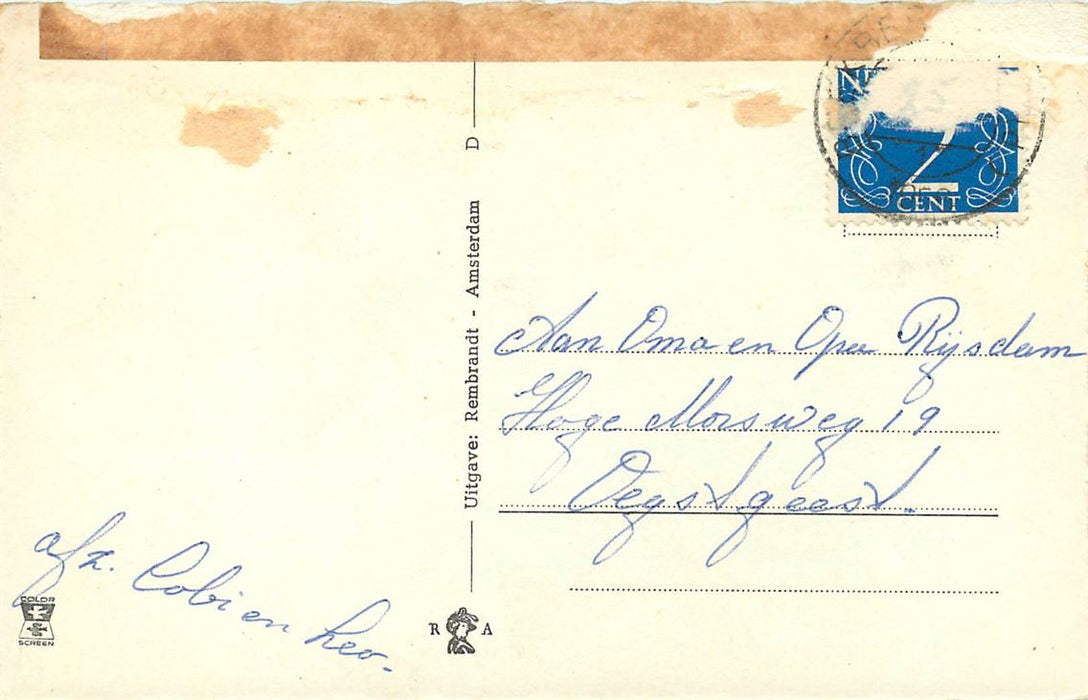 2
CENT
D
Uitgave: Rembrandt - Amsterdam
Aan Oma en Opa Rijsdam
Hoge Morsweg 19
Oegstgeest.
afz. Cobi en Leo.
COLOR
SCREEN
R A